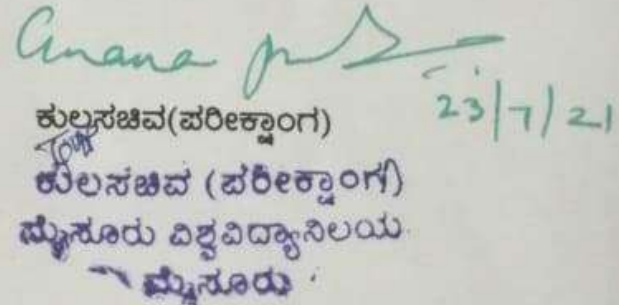 23/7/21
ಕುಲಸಚಿವ(ಪರೀಕ್ಷಾಂಗ)
ಕುಲಸಚಿವ (ಪರೀಕ್ಷಾಂಗ)
ಮೈಸೂರು ವಿಶ್ವವಿದ್ಯಾನಿಲಯ
ಮೈಸೂರು